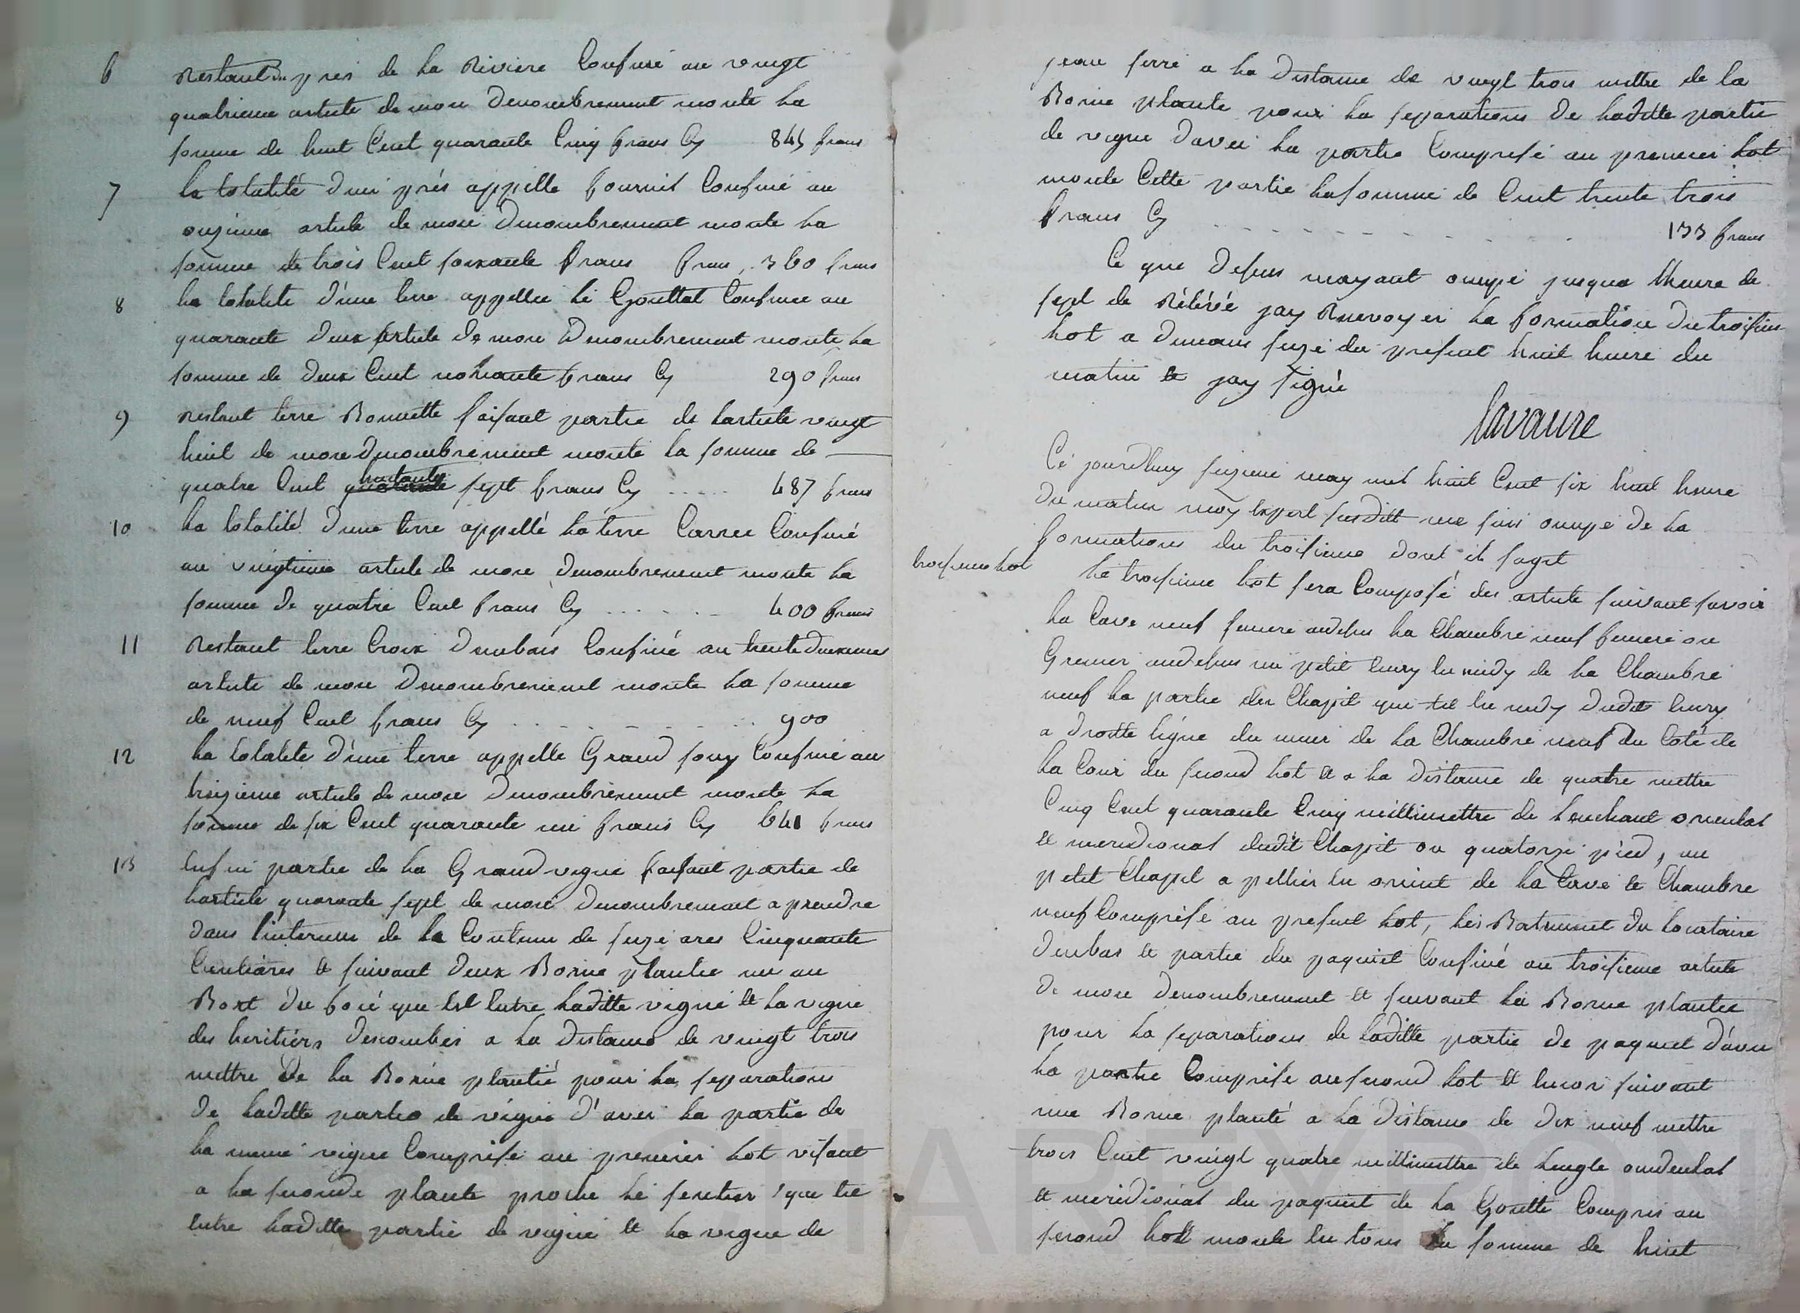 6 Restant du pres de la Riviere Confiné au vingt
quatrieme article de mon Denombrement monte la
somme de huit Cent quarante Cinq francs Cy 845 francs
7 la totalité d'un prés appellé fournil Confiné au
onzieme article de mon Denombrement monte la
somme de trois Cent soixante francs francs .. 360 francs
8 la totalite d'une terre appellée le Gouttat Confinee au
quarante deux article de mon Denombrement monte la
somme de deux Cent nonante francs Cy 290 francs
9 restant terre Bonnette faisant partie de larticle vingt
huit de mon denombrement monte la somme de
quatre Cent huitante sept francs Cy ..... 487 francs
10 la totalité d'une terre appellé la terre Carree Confiné
au vingtieme article de mon denombrement monte la
somme de quatre Cent francs Cy ....... 400 francs
11 Restant terre Croix Denbais Confiné au trente deuxieme
article de mon Denombrement monte la somme
de neuf Cent francs Cy .......... 900
12 la totalite d'une terre appelle Grand sony Confiné au
treizieme article de mon Denombrement monte la
somme de six Cent quarante un francs Cy 641 francs
13 Enfin partie de la Grand vigne faisant partie de
larticle quarante sept de mon denombrement a prendre
dans l'interieur de la Contenu de seize ares Cinquante
Centiares et suivant deux Borne plantee un au
Bort du que Est Entre laditte vigne et la vigne
des heritiers Descombes a la distance de vingt trois
mettre de la Borne planté pour la separation
de laditte partie de vigne d'avec la partie de
la meme vigne Comprise au premier lot visant
a la seconde plante proche le sentier que Est
entre laditte partie de vigne et la vigne de
jean serre a la distance de vingt trois mettre de la
Borne plante pour la separations de laditte partie
de vigne davec la partie Comprise au premier lot
monte Cette partie la somme de Cent trente trois
francs Cy ............ 133 francs
Ce que dessus mayant oucupé jusqua lheure de
sept de Rélévé jay Renvoyer la formation du troisieme
lot a demain seize du present huit heure du
matin et jay signé
Lavaure
Cé jourdhuy seizieme may mil huit Cent six huit heure
du matin moy Expert susdit me suis oucupé de la
formations du troisieme dont il sagit
troisieme lot
Le troisieme lot sera Composé des article suivant savoir
la Cave neuf audessus la Chambre neuf ou
Grenier audessus un petit Cuvy du midy de la Chambre
neuf la partie du Chapit que est du midy dudit Cuvy
a droitte ligne du mur de la Chambre neuf du Coté de
la Cour du second lot et a la distance de quatre mettre
Cinq Cent quarante Cinq millimettre de orientat
et meridional dudit Chapit ou quatorze pied, un
petit Chapit a du orient de la Cave et Chambre
neuf Comprise au present lot, les Batiment du locataire
denbas et partie du paquiet Confiné au troisieme article
de mon denombrement et suivant la Borne plantee
pour la separations de laditte partie de paquiet davec
la partie Comprise au second lot et encor suivant
une Borne planté a la distance de dix neuf mettre
trois Cent vingt quatre millimettre de langle oucidental
et meridional du paquiet de la Goutte Compris au
second lot monte Le tous la somme de huit